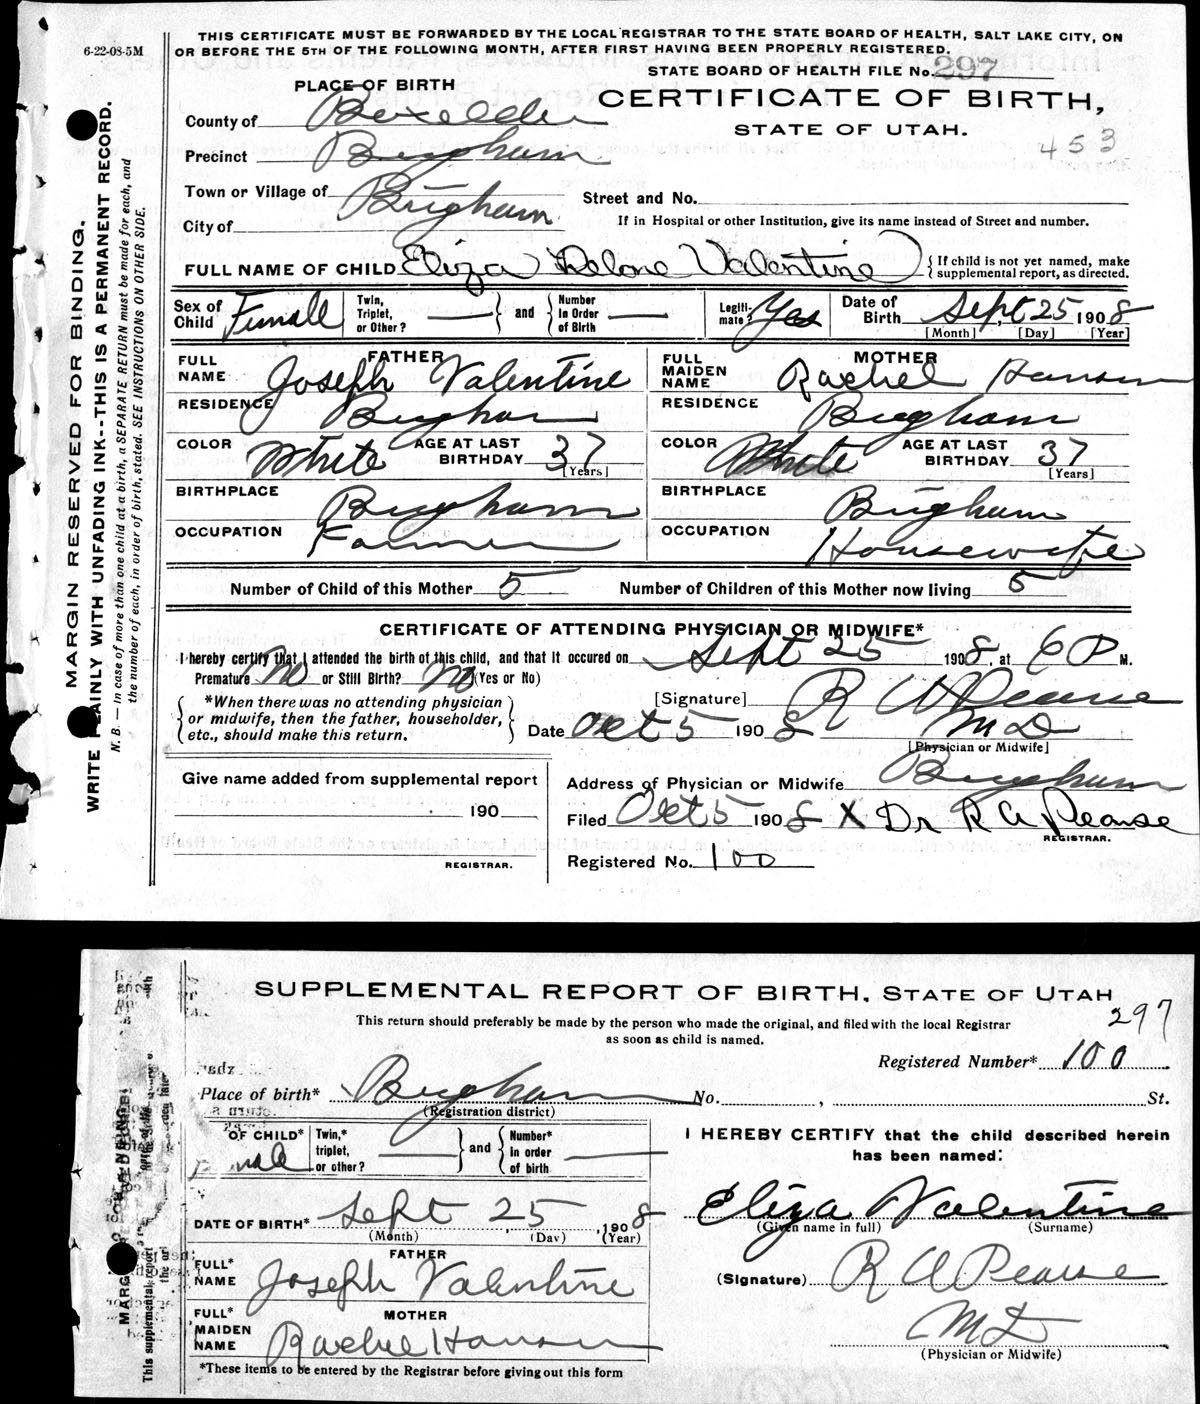 6-22-08-5M
THIS CERTIFICATE MUST BE FORWARDED BY THE LOCAL REGISTRAR TO THE STATE BOARD OF HEALTH, SALT LAKE CITY, ON
OR BEFORE THE 5TH OF THE FOLLOWING MONTH, AFTER FIRST HAVING BEEN PROPERLY REGISTERED.
STATE BOARD OF HEALTH FILE No. 297
PLACE OF BIRTH
CERTIFICATE OF BIRTH,
STATE OF UTAH.
453
County of Boxelder
Precinct Brigham
Town or Village of
City of Brigham
Street and No.
If in Hospital or other Institution, give its name instead of Street and number.
FULL NAME OF CHILD Eliza Delone Valentine
If child is not yet named, make
supplemental report, as directed.
Sex of Child Female
Twin, Triplet, or Other? — and Number In Order of Birth —
Legitimate? Yes
Date of Birth Sept 25 1908
[Month] [Day] [Year]
FATHER
FULL NAME Joseph Valentine
RESIDENCE Brigham
COLOR White AGE AT LAST BIRTHDAY 37
[Years]
BIRTHPLACE Brigham
OCCUPATION Farmer
MOTHER
FULL MAIDEN NAME Rachel Hansen
RESIDENCE Brigham
COLOR White AGE AT LAST BIRTHDAY 37
[Years]
BIRTHPLACE Brigham
OCCUPATION Housewife
Number of Child of this Mother 5 Number of Children of this Mother now living 5
CERTIFICATE OF ATTENDING PHYSICIAN OR MIDWIFE*
I hereby certify that I attended the birth of this child, and that it occured on Sept 25 1908, at 6 P M.
Premature No or Still Birth? No (Yes or No)
*When there was no attending physician
or midwife, then the father, householder,
etc., should make this return.
[Signature] R A Pearse
M D
Date Oct 5 1908
[Physician or Midwife]
Give name added from supplemental report
190
REGISTRAR.
Address of Physician or Midwife Brigham
Filed Oct 5 1908 X Dr R A Pearse
REGISTRAR.
Registered No. 100
MARGIN RESERVED FOR BINDING.
WRITE PLAINLY WITH UNFADING INK--THIS IS A PERMANENT RECORD.
N. B. — In case of more than one child at a birth, a SEPARATE RETURN must be made for each, and
the number of each, in order of birth, stated. SEE INSTRUCTIONS ON OTHER SIDE.
SUPPLEMENTAL REPORT OF BIRTH, STATE OF UTAH
297
This return should preferably be made by the person who made the original, and filed with the local Registrar
as soon as child is named.
Registered Number* 100
Place of birth* Brigham No. , St.
(Registration district)
OF CHILD* Female
Twin,* triplet, or other? — and Number* In order of birth —
DATE OF BIRTH* Sept 25, 1908
(Month) (Day) (Year)
FATHER
FULL* NAME Joseph Valentine
MOTHER
FULL* MAIDEN NAME Rachel Hansen
*These items to be entered by the Registrar before giving out this form
I HEREBY CERTIFY that the child described herein
has been named:
Eliza Valentine
(Given name in full) (Surname)
(Signature) R A Pearse
M D
(Physician or Midwife)
This supplemental report